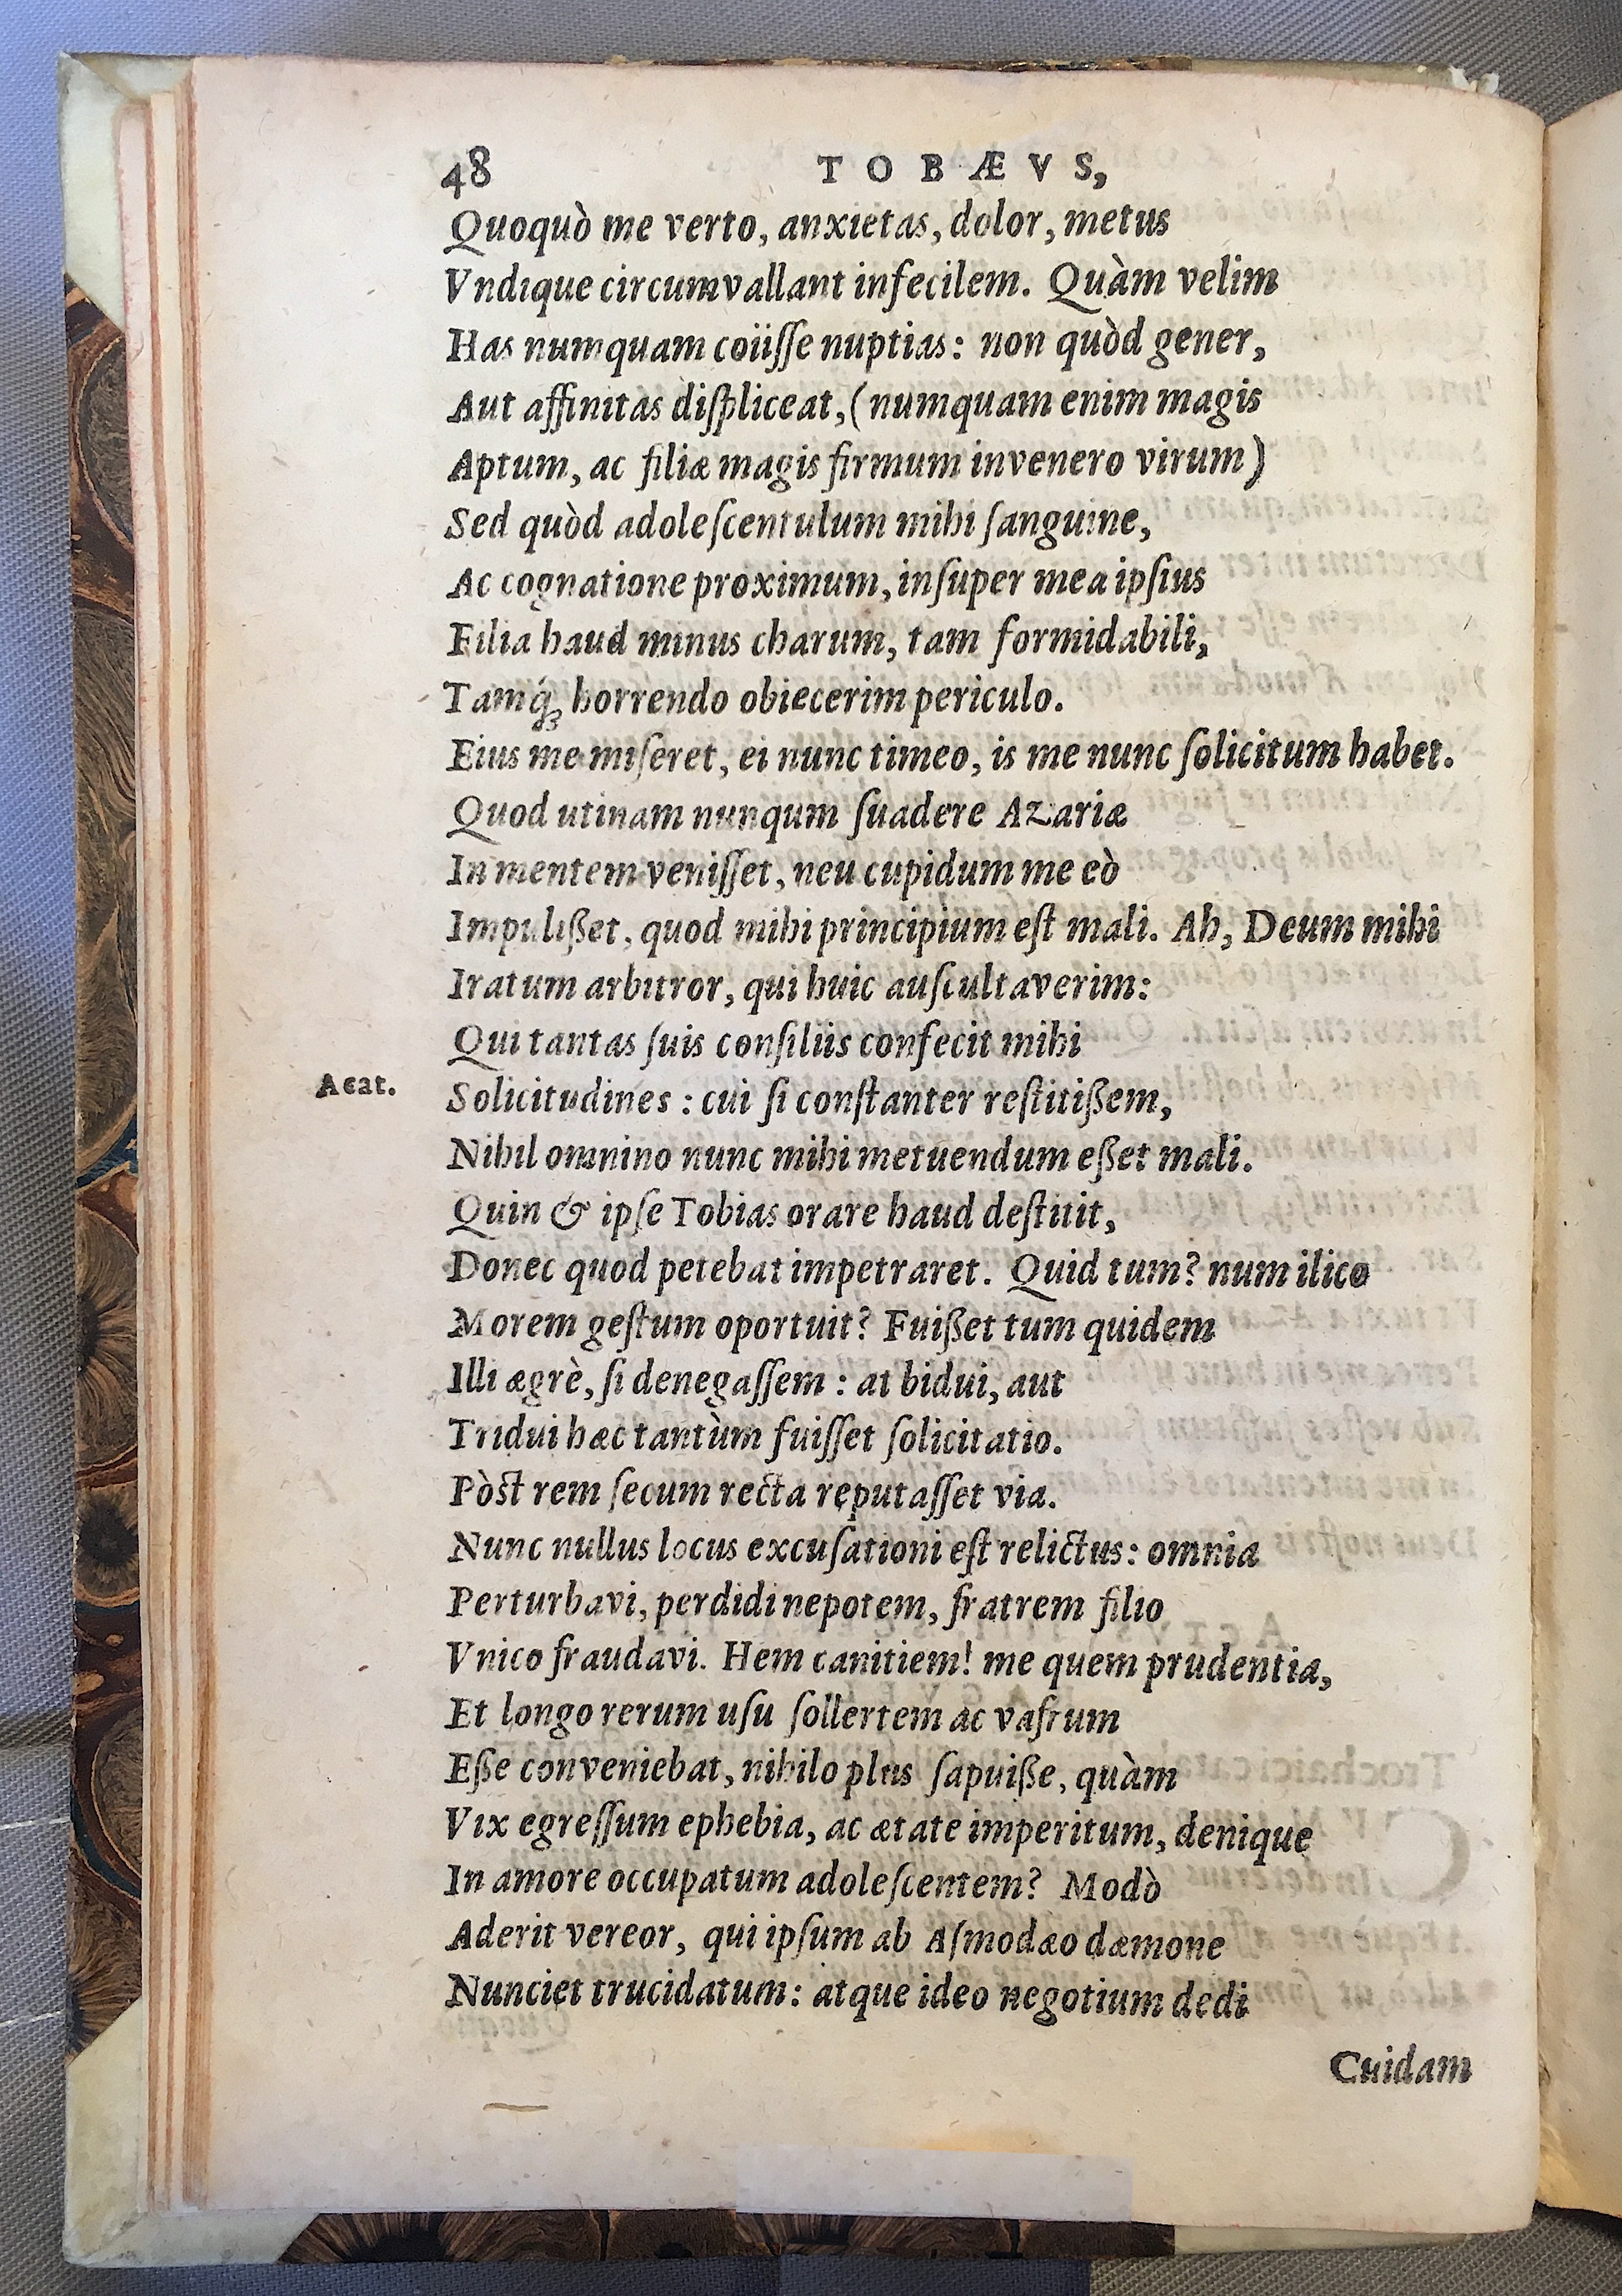 48 TOBÆVS,
Quoquò me verto, anxietas, dolor, metus
Vndique circumvallant infecilem. Quàm velim
Has numquam coiisſe nuptias: non quòd gener,
Aut affinitas diſpliceat, (numquam enim magis
Aptum, ac filiæ magis firmum invenero virum)
Sed quòd adoleſcentulum mihi ſanguine,
Ac cognatione proximum, inſuper mea ipſius
Filia haud minus charum, tam formidabili,
Tamq́ꝫ horrendo obiecerim periculo.
Eius me miſeret, ei nunc timeo, is me nunc ſolicitum habet.
Quod utinam nunqum ſuadere Azariæ
In mentem veniſſet, neu cupidum me eò
Impulißet, quod mihi principium eſt mali. Ah, Deum mihi
Iratum arbitror, qui huic auſcultaverim:
Qui tantas ſuis conſiliis confecit mihi
Acat. Solicitudines: cui ſi conſtanter reſtitißem,
Nihil omnino nunc mihi metuendum eßet mali.
Quin & ipſe Tobias orare haud deſtitit,
Donec quod petebat impetraret. Quid tum? num ilico
Morem geſtum oportuit? Fuißet tum quidem
Illi ægrè, ſi denegaſſem: at bidui, aut
Tridui hæc tantùm fuiſſet ſolicitatio.
Pòſt rem ſecum recta reputaſſet via.
Nunc nullus locus excuſationi eſt relictus: omnia
Perturbavi, perdidi nepotem, fratrem filio
Vnico fraudavi. Hem canitiem! me quem prudentia,
Et longo rerum uſu ſollertem ac vafrum
Eße conveniebat, nihilo plus ſapuiße, quàm
Vix egreſſum ephebia, ac ætate imperitum, denique
In amore occupatum adoleſcentem? Modò
Aderit vereor, qui ipſum ab Aſmodæo dæmone
Nunciet trucidatum: atque ideo negotium dedi
Cuidam